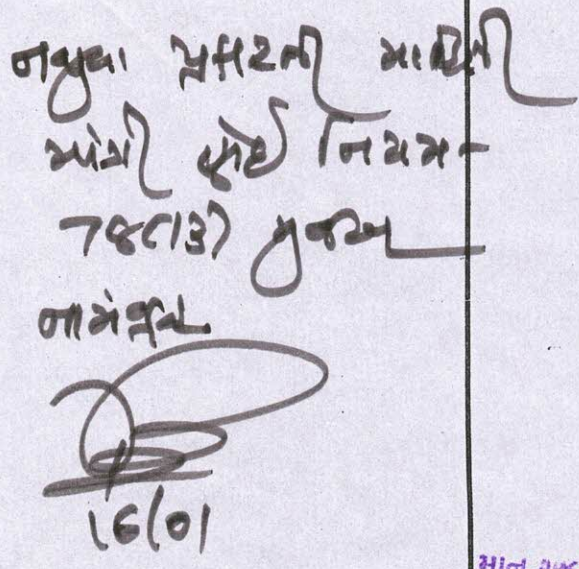 નમુના પ્રકારની માહિતી
માંગી હોઈ નિયમ-
78(13) મુજબ
નામંજૂર
16/01
માન